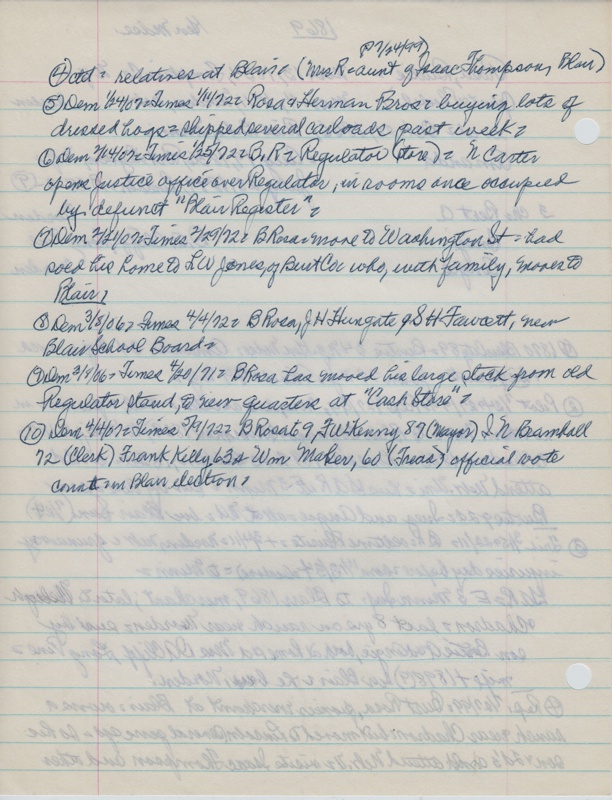 P 7/24/99)
④ add = relatives at Blair = (Mrs R = aunt of Isaac Thompson, Blair)
⑤ Dem = Times 1/11/72 = Rosa & Herman Bros = buying lots of
dressed hogs = shipped several carloads past week =
⑥ Dem = Times 1/25/72 = B, R = Regulator (store) = N Carter
opens Justice office over Regulator, in rooms once occupied
by defunct "Blair Register" =
⑦ Dem = Times 2/29/72 = B Rosa = move to Washington St = had
sold his home to L W Jones, of Burt Co = who, with family, moves to
Blair,
⑧ Dem 3/8/06 = Times 4/4/72 = B Rosa, J H Hungate & S H Fawcett, new
Blair School Board =
⑨ Dem = Times 4/20/71 = B Rosa has moved his large stock from old
Regulator stand, to new quarters at "Cash Store" =
⑩ Dem 4/4/07 = Times B Rosa 69, F W Kenny 87 (Mayor) I. N Bramhall
72 (Clerk) Frank Kelly 63 & Wm Maher, 60 (Treas) official vote
count in Blair election,